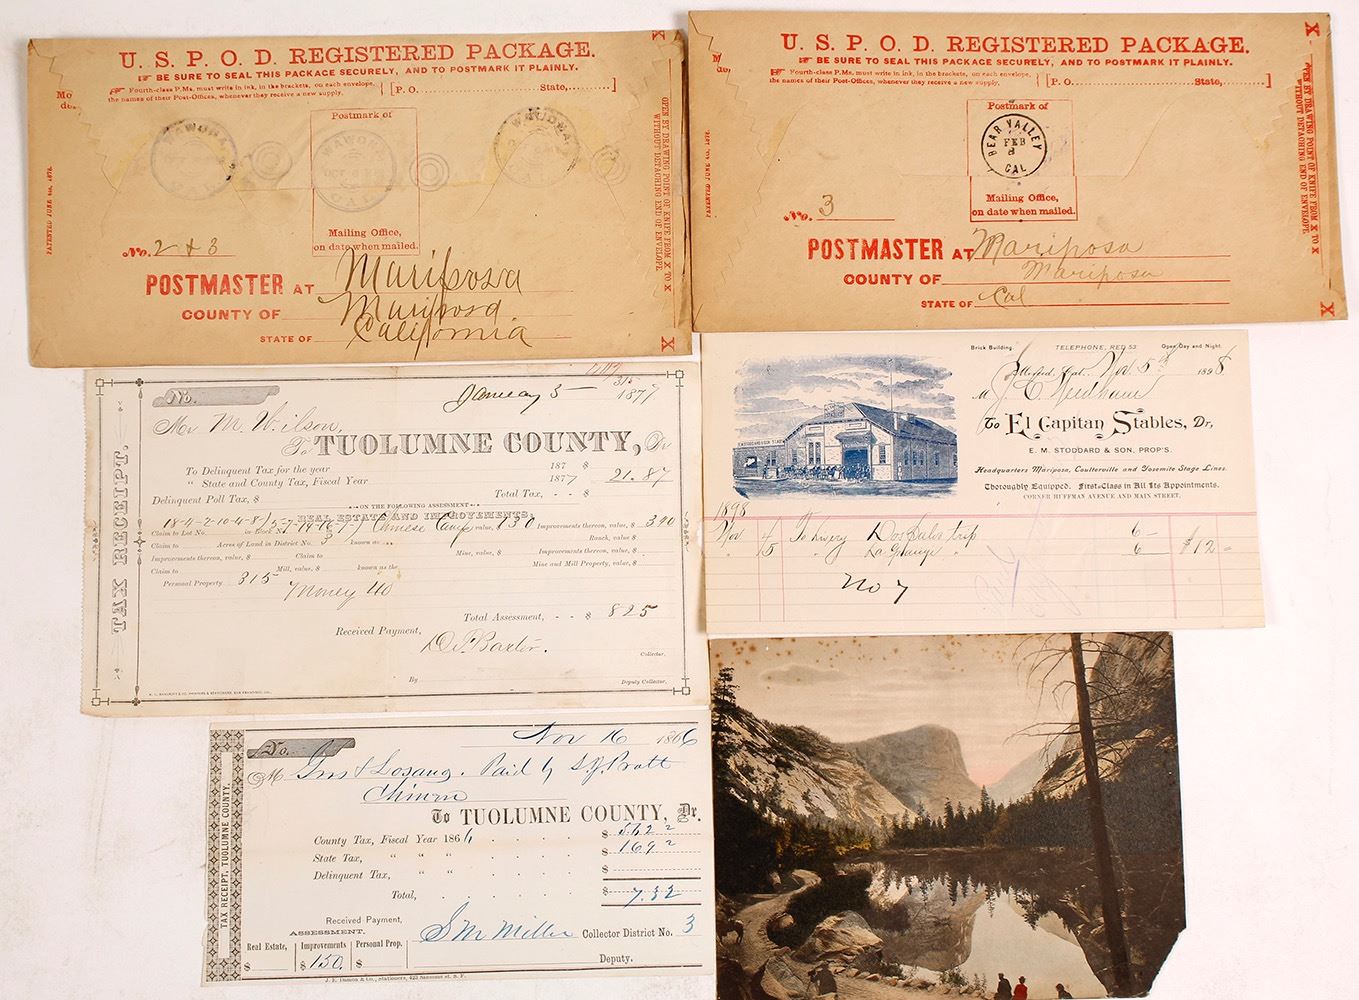 U. S. P. O. D. REGISTERED PACKAGE.
BE SURE TO SEAL THIS PACKAGE SECURELY, AND TO POSTMARK IT PLAINLY.
Fourth-class P.Ms. must write in ink, in the brackets, on each envelope,
the names of their Post-Offices, whenever they receive a new supply.
[P. O. State, ]
Postmark of
WAWONA
CAL
Mailing Office,
on date when mailed.
No. 2 + 3
POSTMASTER AT Mariposa
COUNTY OF Mariposa
STATE OF California
PATENTED JUNE 4th, 1872.
OPEN BY DRAWING POINT OF KNIFE FROM X TO X
WITHOUT DETACHING END OF ENVELOPE.
X
X
U. S. P. O. D. REGISTERED PACKAGE.
BE SURE TO SEAL THIS PACKAGE SECURELY, AND TO POSTMARK IT PLAINLY.
Fourth-class P.Ms. must write in ink, in the brackets, on each envelope,
the names of their Post-Offices, whenever they receive a new supply.
[P. O. State, ]
Postmark of
BEAR VALLEY
FEB
8
CAL
Mailing Office,
on date when mailed.
No. 3
POSTMASTER AT Mariposa
COUNTY OF Mariposa
STATE OF Cal
PATENTED JUNE 4th, 1872.
OPEN BY DRAWING POINT OF KNIFE FROM X TO X
WITHOUT DETACHING END OF ENVELOPE.
X
X
TAX RECEIPT.
No.
January 5 1877
315
Mr M. Wilson,
To TUOLUMNE COUNTY, Dr
To Delinquent Tax for the year 187 $
" State and County Tax, Fiscal Year 1877 21.87
Delinquent Poll Tax, $ Total Tax, - - $
ON THE FOLLOWING ASSESSMENT
REAL ESTATE AND IMPROVEMENTS,
Chinese Camp value, $ 30 Improvements thereon, value, $ 390
Claim to Lot No. in Block No.
Claim to Acres of Land in District No. 3 known as Ranch, value, $
Improvements thereon, value, $ Claim to Mine, value, $ Improvements thereon, value, $
Claim to Mill, value, $ known as the Mine and Mill Property, value, $
Personal Property 315
Money 40
Total Assessment, - - $ 825
Received Payment,
D. P. Baxter.
Collector.
By Deputy Collector.
Brick Building. TELEPHONE, RED 53 Open Day and Night.
Merced, Cal. Nov 5th 1898
M J C Needham
To El Capitan Stables, Dr,
E. M. STODDARD & SON, PROP'S.
Headquarters Mariposa, Coulterville and Yosemite Stage Lines.
Thoroughly Equipped. First-Class in All Its Appointments.
CORNER HUFFMAN AVENUE AND MAIN STREET.
1898
Nov 4 To livery Dos Palos trip 6-
" 5 " " La Grange " 6- $12-
No 7
TAX RECEIPT, TUOLUMNE COUNTY.
No.
Nov 16 1866
Paid by S. J. Pratt
To TUOLUMNE COUNTY, Dr.
County Tax, Fiscal Year 1866 $ 5.62
State Tax, " " " $ 1.69
Delinquent Tax, " " $
Total, $ 7.32
Received Payment,
ASSESSMENT.
S M Miller Collector District No. 3
Real Estate, Improvements Personal Prop.
$ $ 150. $ Deputy.